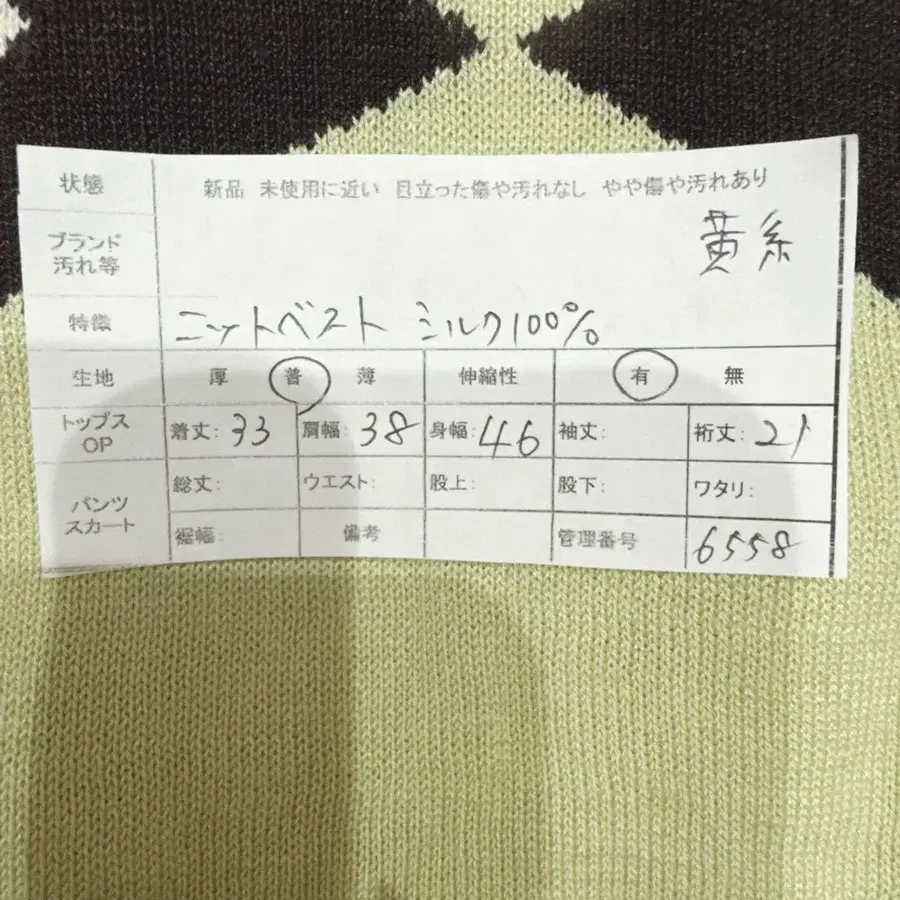 状態 新品 未使用に近い 目立った傷や汚れなし やや傷や汚れあり
ブランド 黄系
汚れ等
特徴 ニットベスト シルク100%
生地 厚 普 薄 伸縮性 有 無
トップス
OP 着丈: 33 肩幅: 38 身幅: 46 袖丈: 裄丈: 21
総丈: ウエスト: 股上: 股下: ワタリ:
パンツ
スカート
裾幅: 備考 管理番号 6558